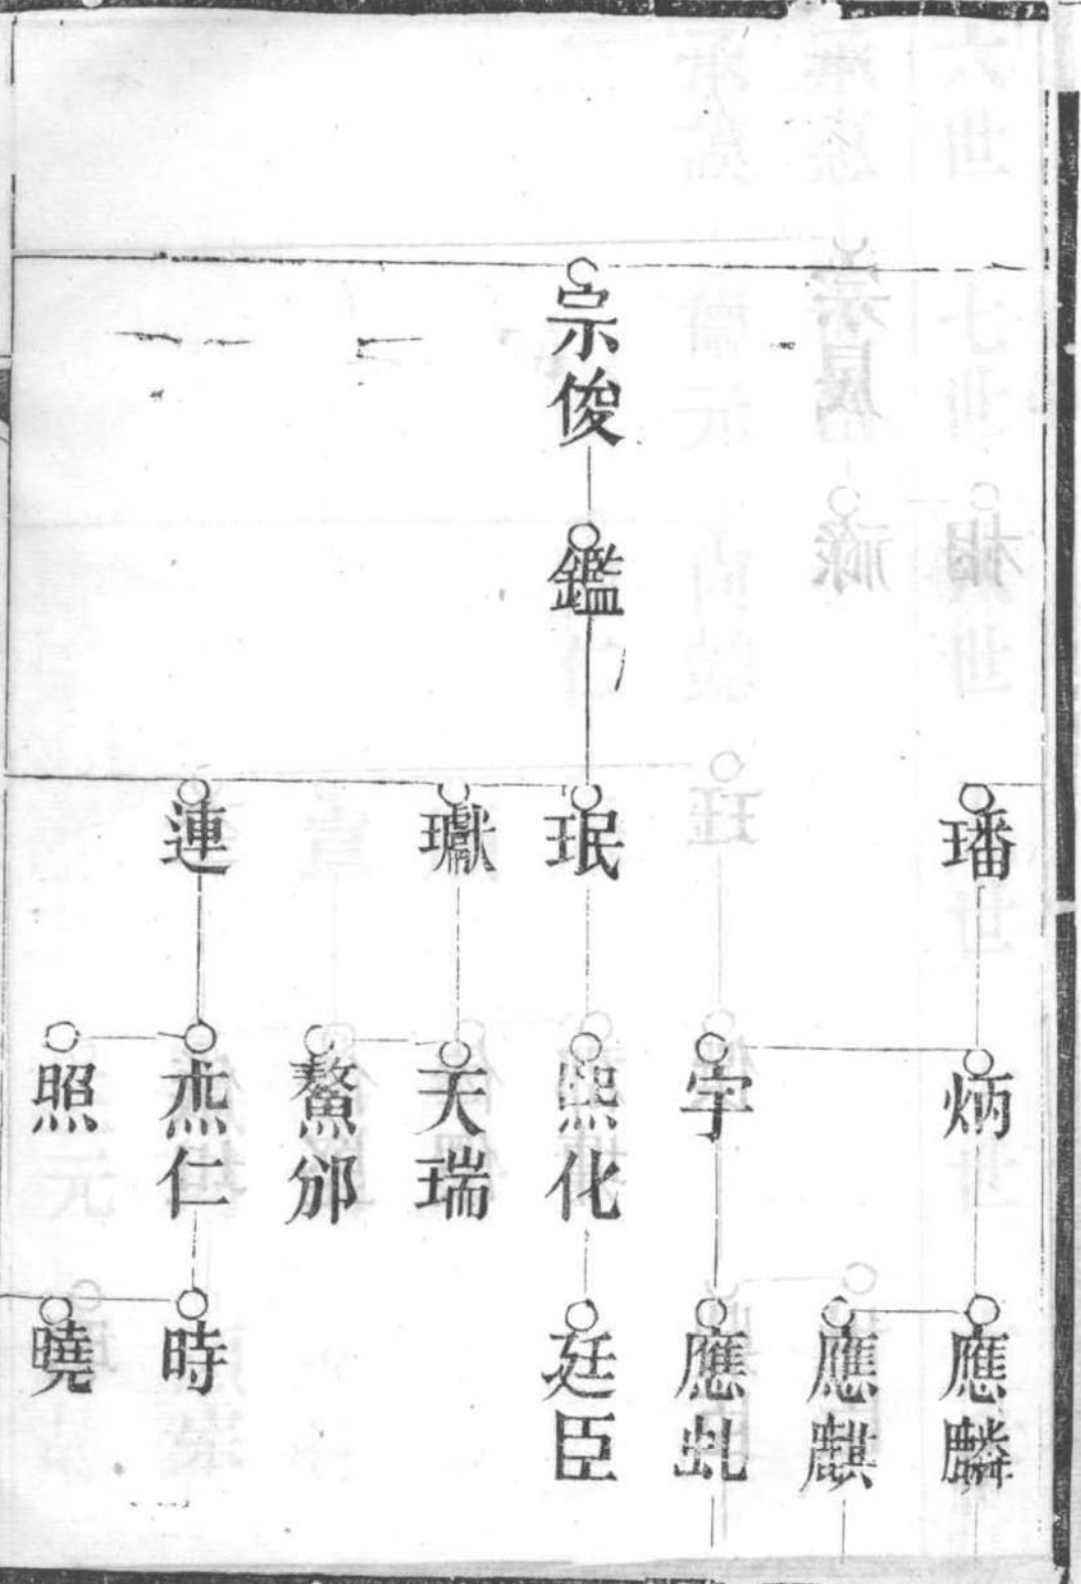 宗俊
鑑
璠
珉
瓛
連
炳
宇
熙化
天瑞
鰲邠
烝仁
照
應麟
應麒
應虬
廷臣
時
曉